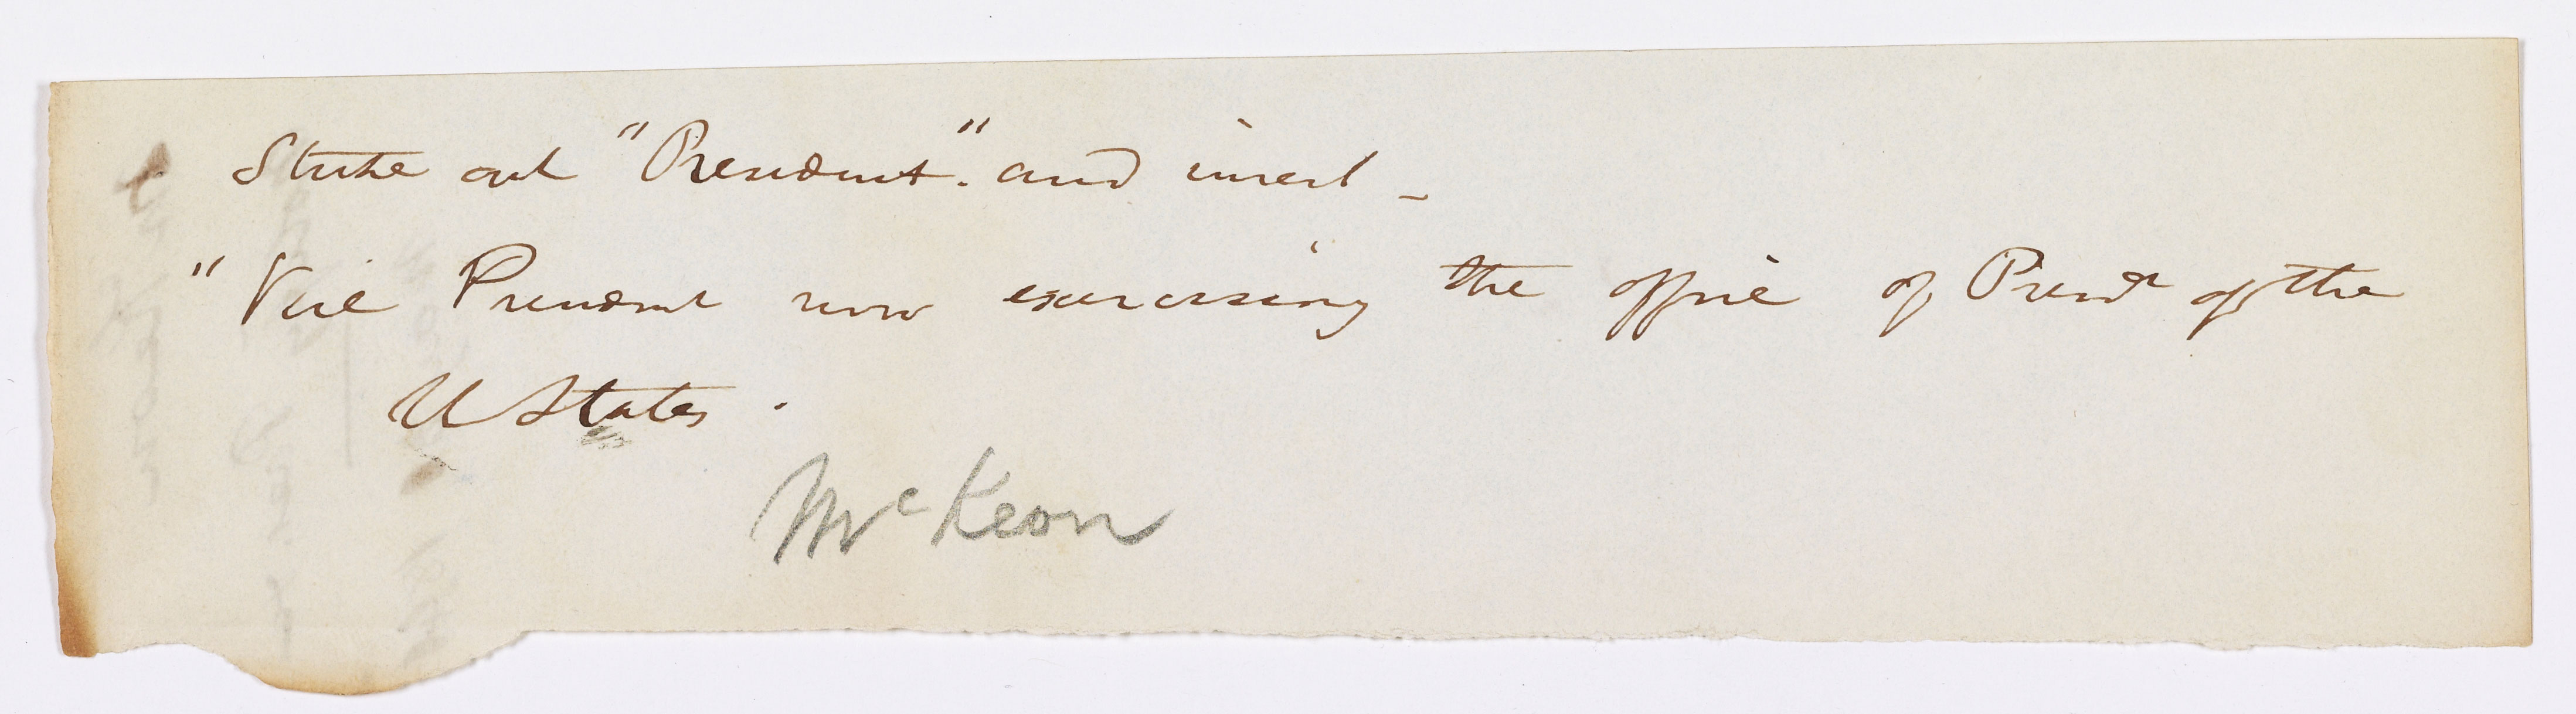 Strike out "President". and insert -
" Vice President now exercising the office of Presdt of the
U States .
McKeon